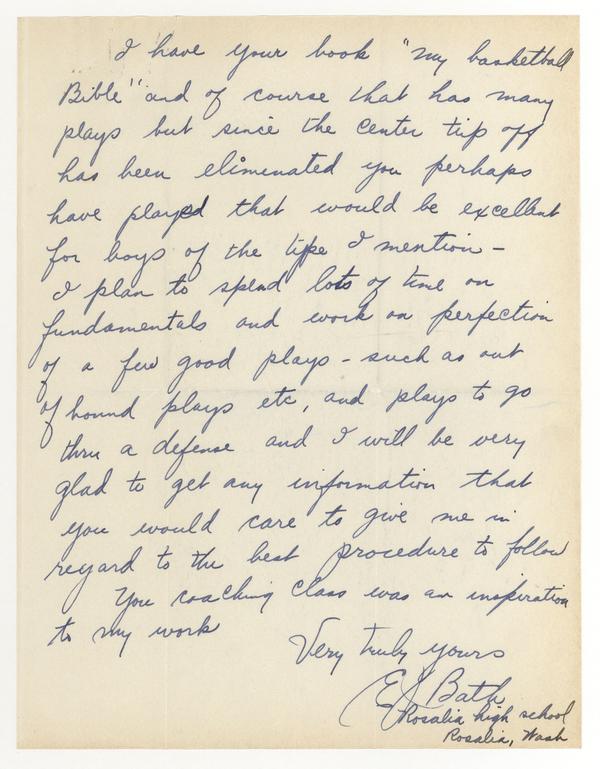 I have your book "my basketball
Bible" and of course that has many
plays but since the center tip off
has been eliminated you perhaps
have played that would be excellent
for boys of the type I mention -
I plan to spend lots of time on
fundamentals and work on perfection
of a few good plays - such as out
of bound plays etc, and plays to go
thru a defense and I will be very
glad to get any information that
you would care to give me in
regard to the best procedure to follow
You coaching class was an inspiration
to my work
Very truly yours
E J Bath
Rosalia high school
Rosalia, Wash